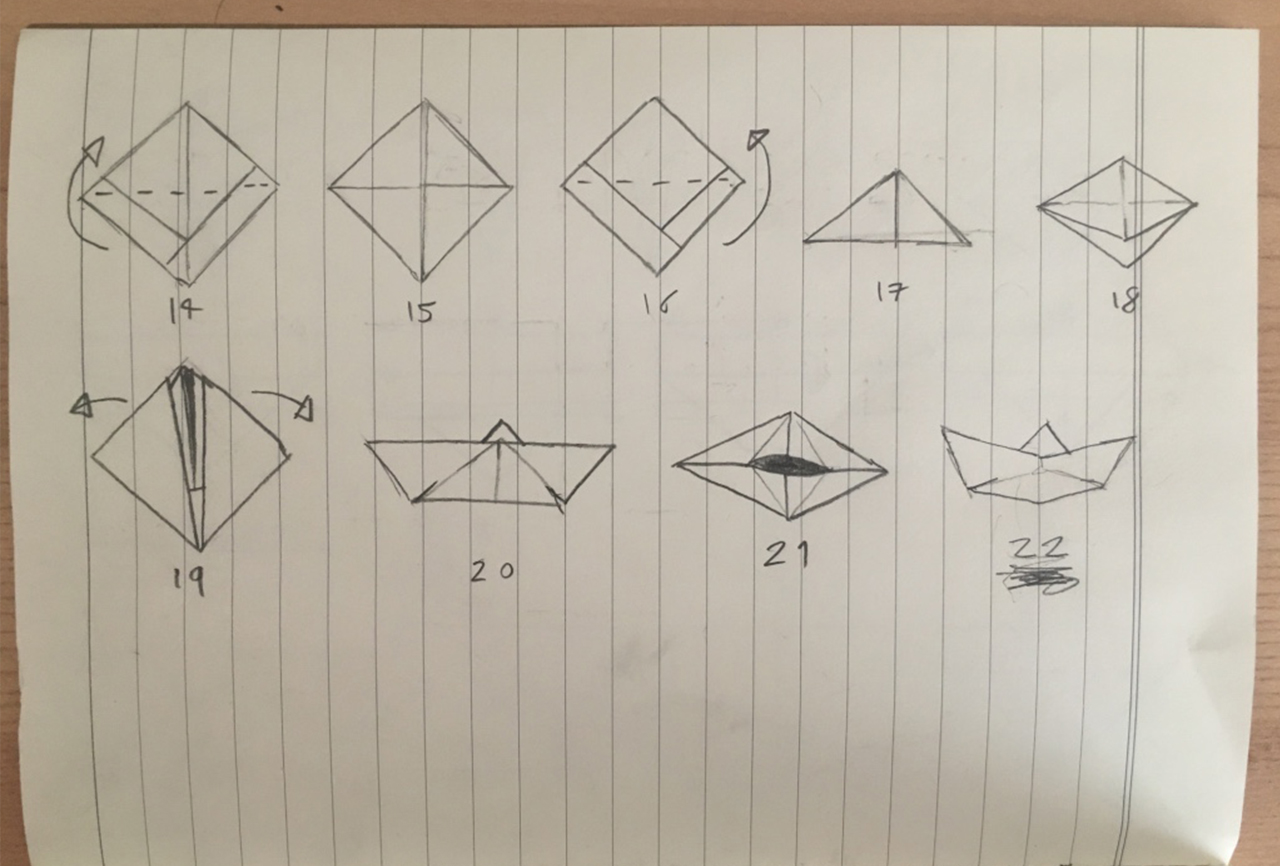 14 15 16 17 18
19 20 21 22